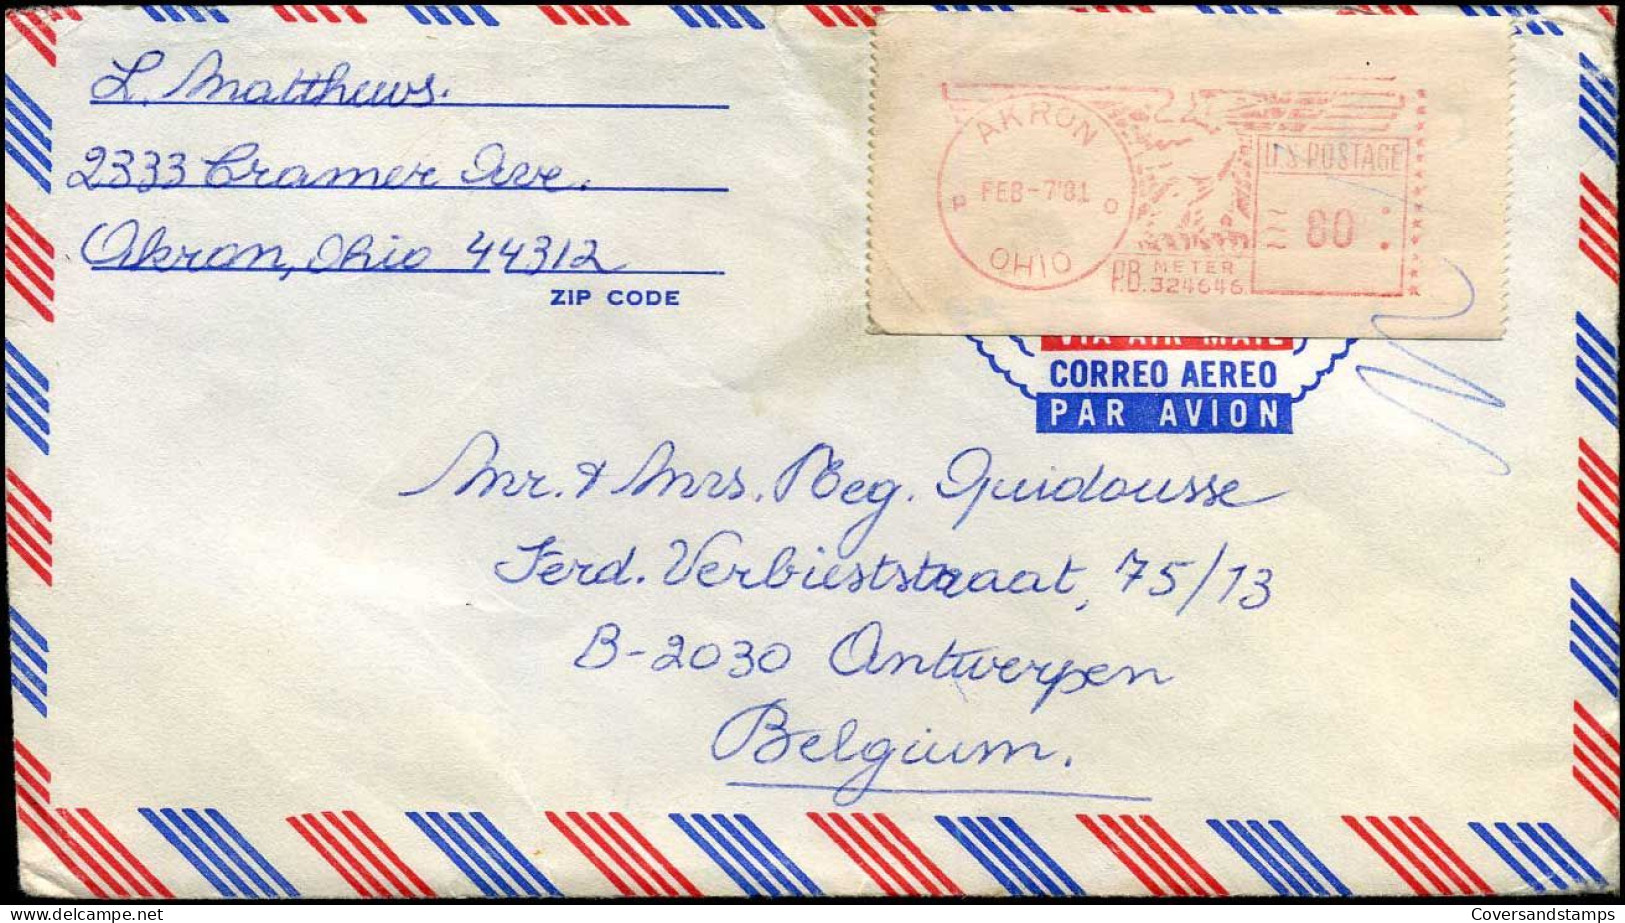 L. Matthews.
2333 Cramer Ave.
Akron, Ohio 44312
ZIP CODE
AKRON
FEB-7'81
P O
OHIO
P.B. METER
324646
U.S. POSTAGE
80
VIA AIR MAIL
CORREO AEREO
PAR AVION
Mr. & Mrs. Reg. Guidousse
Ferd. Verbieststraat, 75/13
B-2030 Antwerpen
Belgium.
Coversandstamps